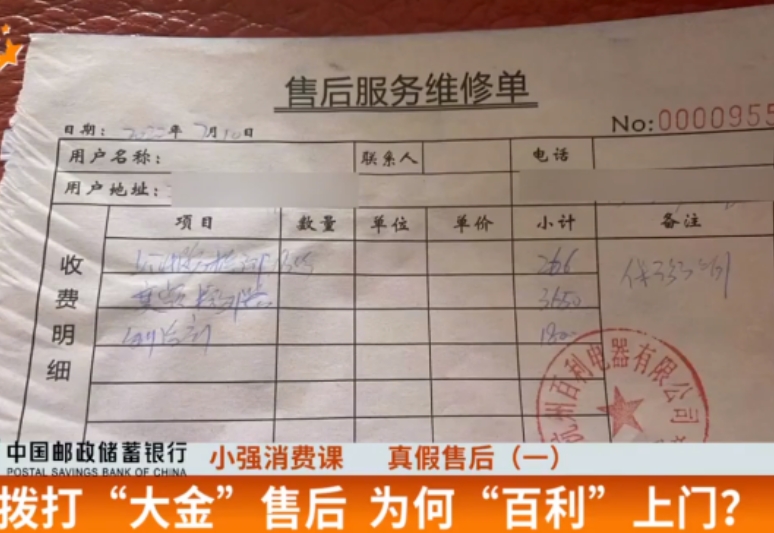 售后服务维修单
日期: 2022年7月10日
No:0000955
用户名称: 联系人 电话
用户地址:
项目 数量 单位 单价 小计 备注
收费明细
266
3650
180
杭州百利电器有限公司
中国邮政储蓄银行
POSTAL SAVINGS BANK OF CHINA
小强消费课 真假售后（一）
拨打“大金”售后 为何“百利”上门?